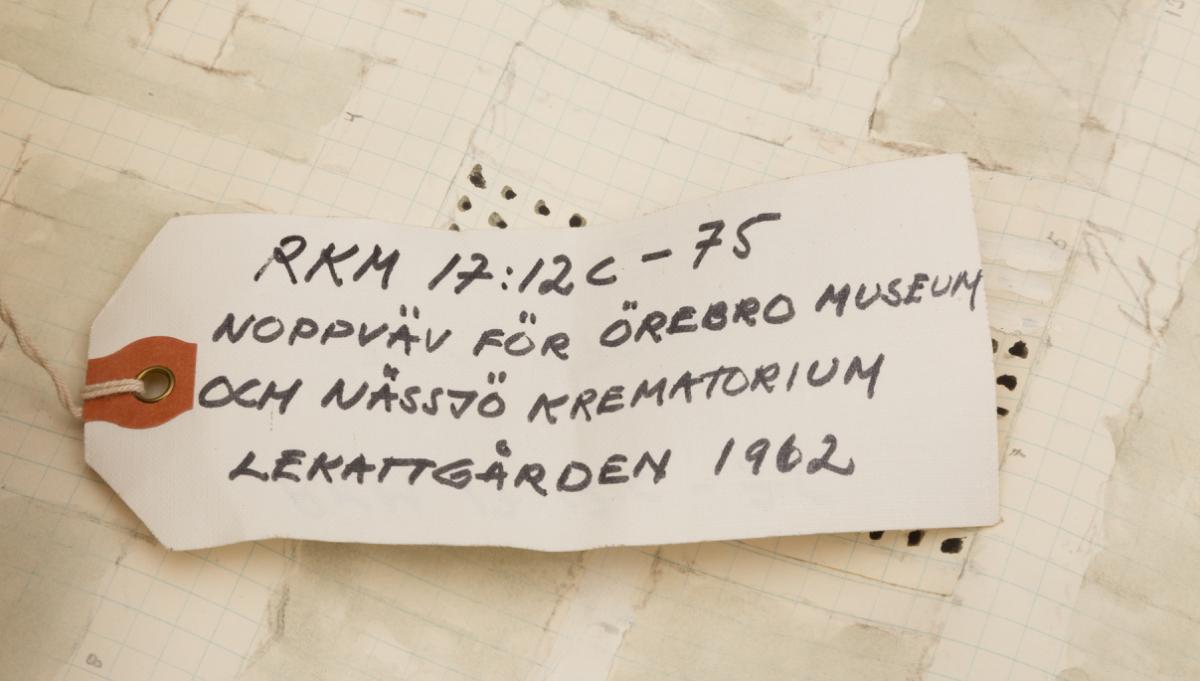 RKM 17:12C-75
NOPPVÄV FÖR ÖREBRO MUSEUM
OCH NÄSSJÖ KREMATORIUM
LEKATTGÅRDEN 1962